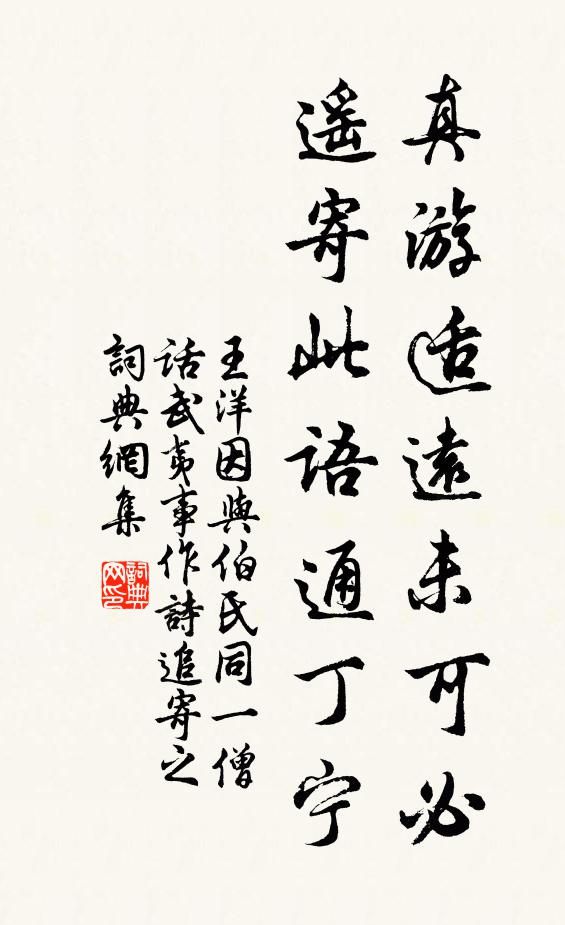 真游适遠未可必
遥寄此語通丁宁
王洋因與伯氏同一僧
话武夷事作詩追寄之
詞典網集
詞典
网印